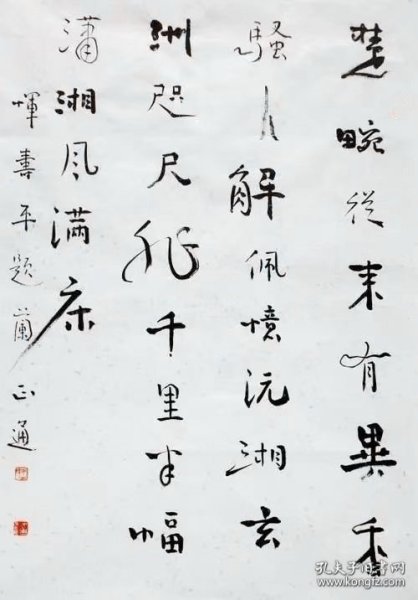 楚畹從来有異香
騷人解佩憶沅湘玄
洲咫尺非千里半幅
瀟湘风满床
惲壽平題蘭 正通
孔夫子旧书网
www.kongfz.com